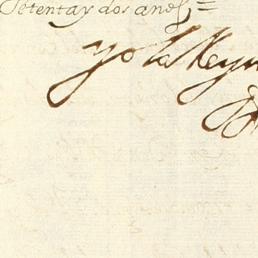 Setenta y dos años =
yo la Reyn